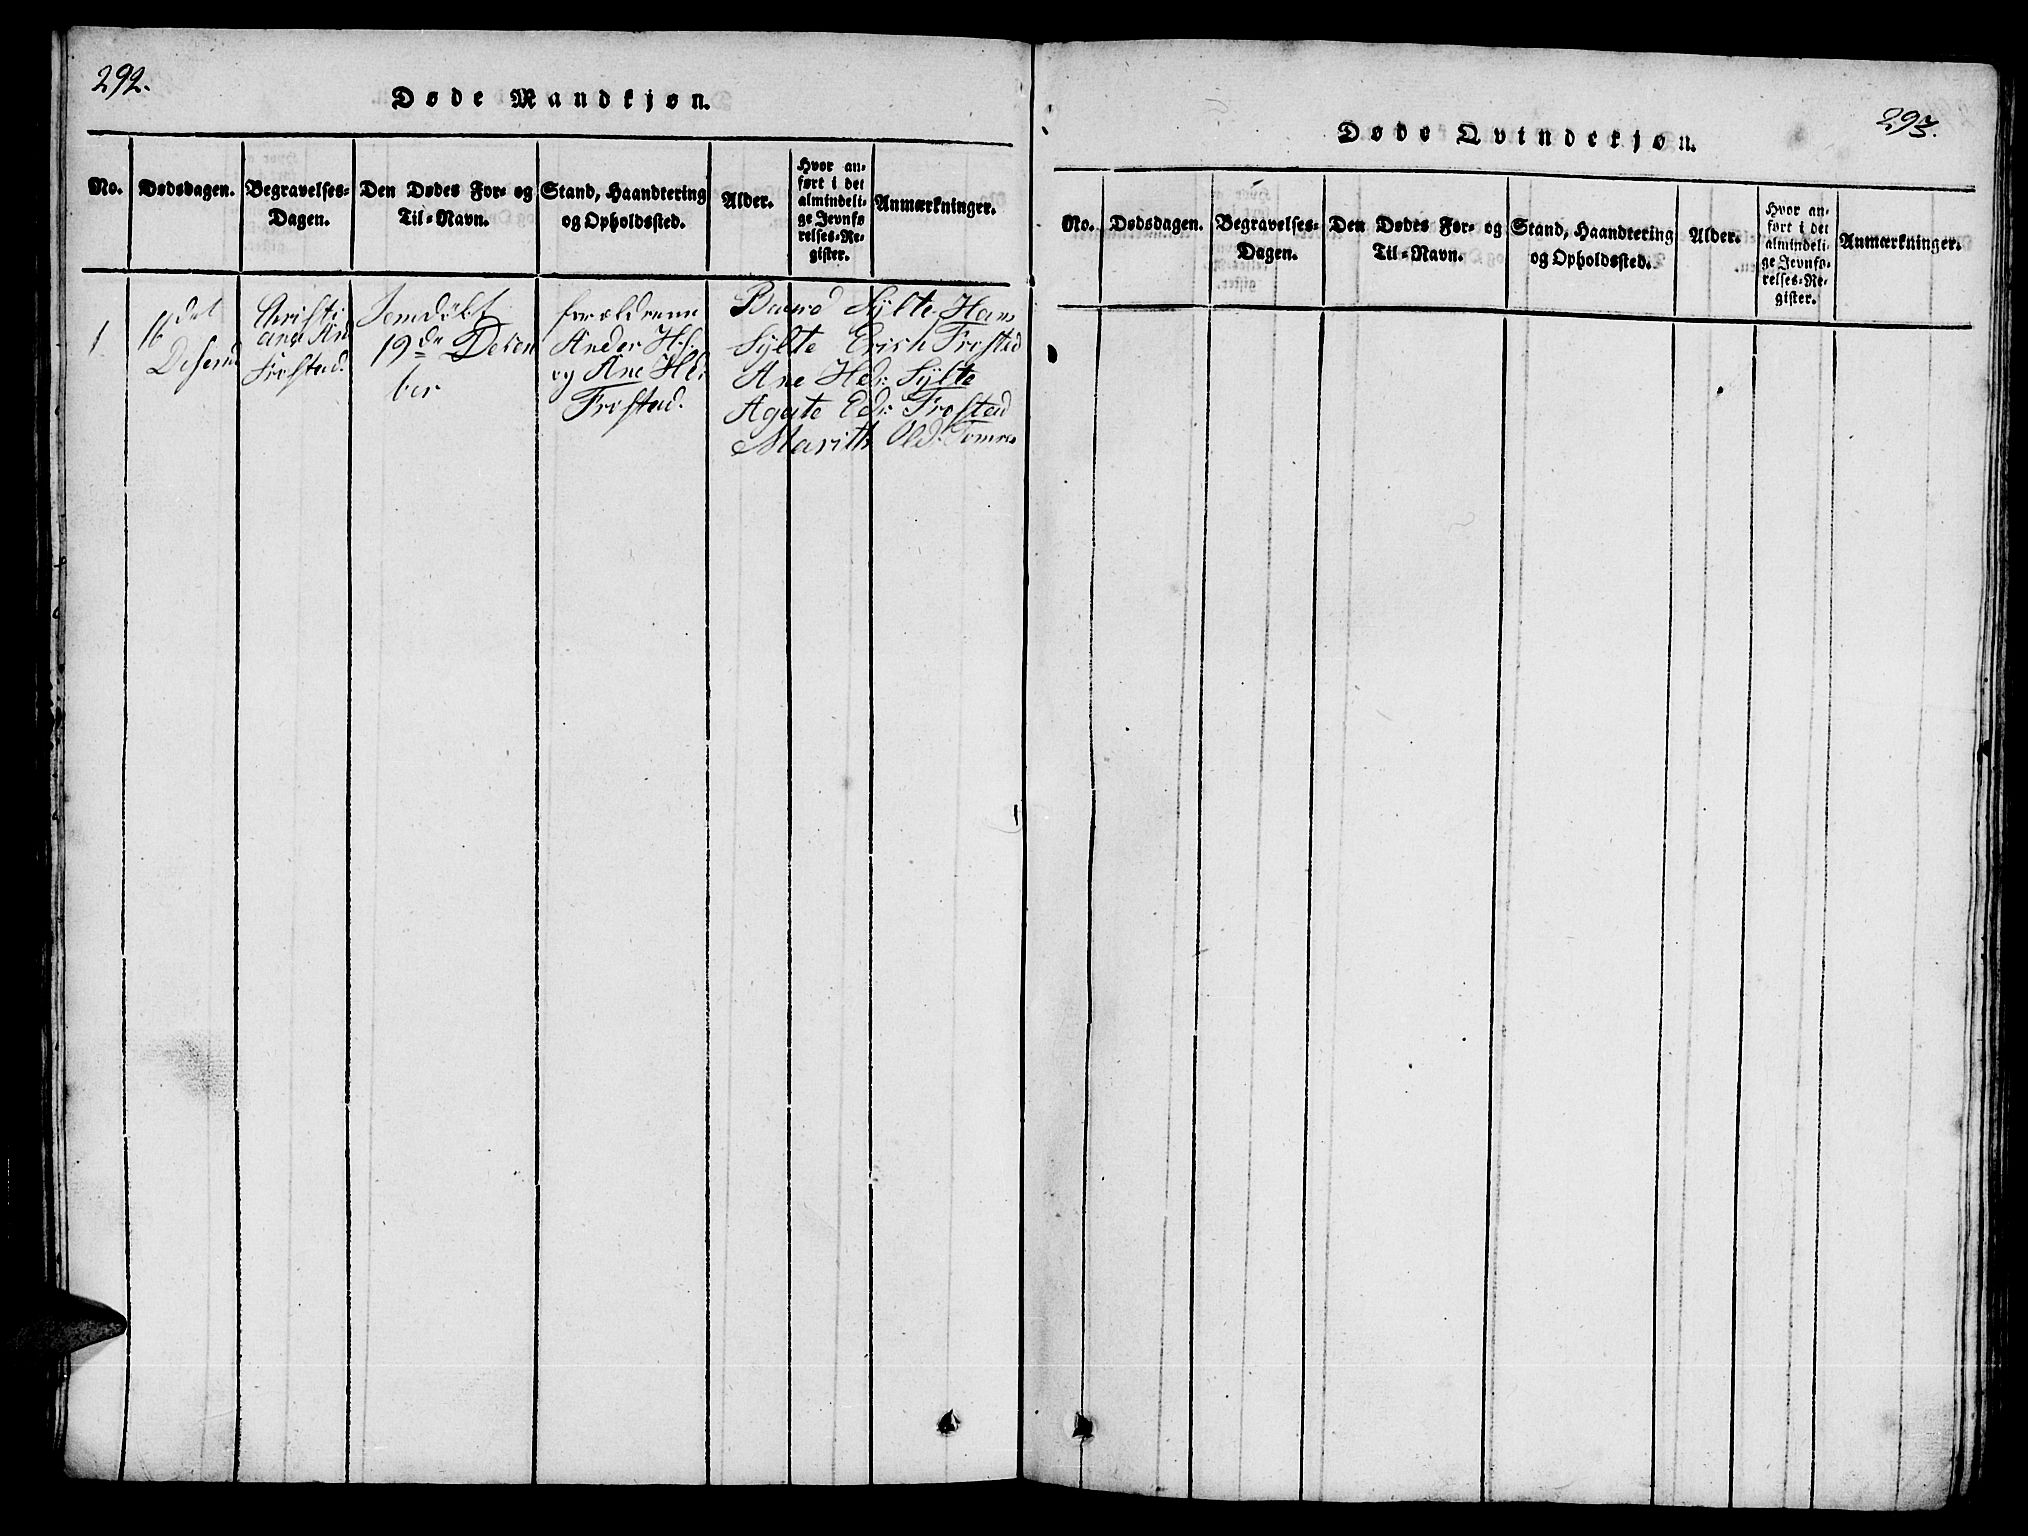 292.
Døde Mandkjøn.
No.
Dødsdagen.
Begravelses-
Dagen.
Den Dødes For- og
Til-Navn.
Stand, Haandtering
og Opholdssted.
Alder.
Hvor an-
ført i det
almindeli-
ge Jevnfø-
relses-Re-
gister.
Anmærkninger.
1
16 det
Desem
Christi
ana An
Frostad.
Jemdøbt
19de Desem
ber
foreldrene
Ander H.s.
og Ane Hdr
Frostad.
Baard Sylte Hans
Sylte Erich Frostad
Ane Hdr: Sylte
Agate Edr: Frostad
Marith Old: Tomre
293.
Døde Qvindekjøn.
No.
Dødsdagen.
Begravelses-
Dagen.
Den Dødes For- og
Til-Navn.
Stand, Haandtering
og Opholdssted.
Alder.
Hvor an-
ført i det
almindeli-
ge Jevnfø-
relses-Re-
gister.
Anmærkninger.